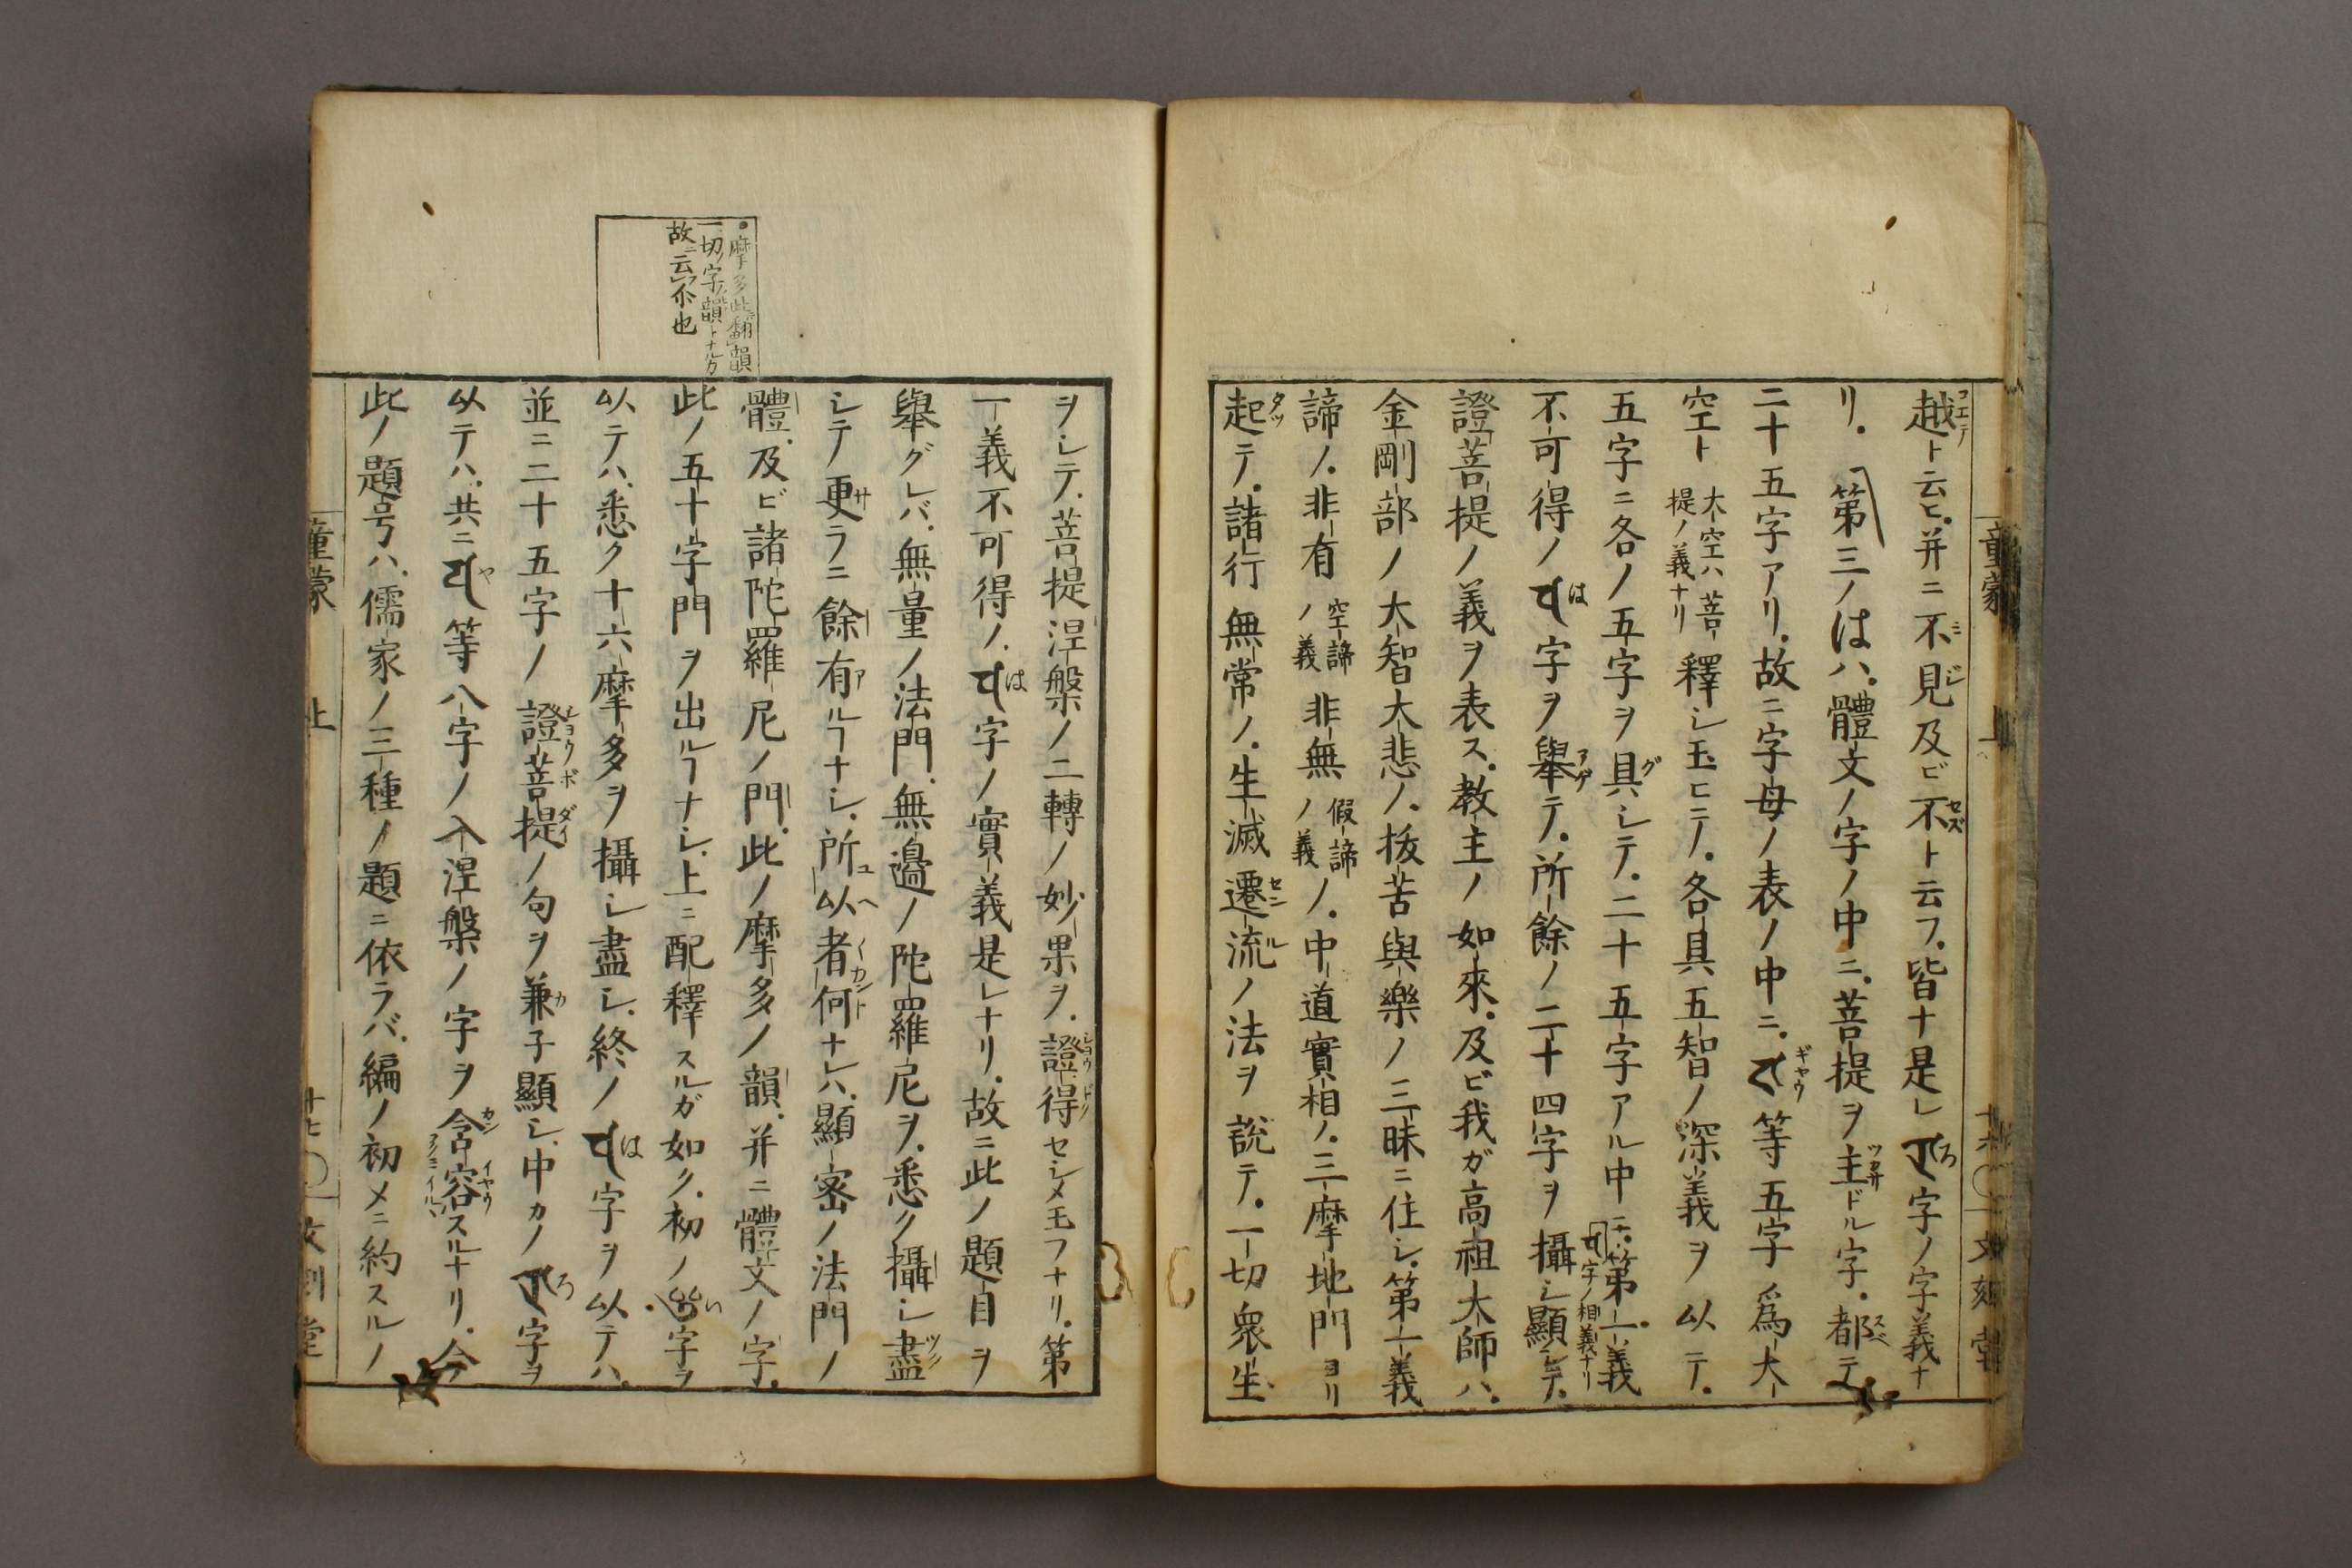 越ト云ヒ。并ニ不見及ビ不ト云フ。皆ナ是レ字ノ字義ナ
リ。第三ノはハ。體文ノ字ノ中ニ。菩提ヲ主ドル字。都テ
二十五字アリ。故ニ字母ノ表ノ中ニ。等五字爲大
空ト大空ハ菩提ノ義ナリ釋シ玉ヒニノ。各具五智ノ深義ヲ以テ。
五字ニ各ノ五字ヲ具シテ。二十五字アル中ニ。第一義
不可得ノ字ヲ舉テ。所餘ノ二十四字ヲ攝シ顯シテ。
證菩提ノ義ヲ表ス。教主ノ如來。及ビ我ガ高祖大師ハ。
金剛部ノ大智大悲ノ。抜苦與樂ノ三昧ニ住シ。第一義
諦ノ。非有空諦ノ義非無假諦ノ義ノ。中道實相ノ。三摩地門ヨリ
起テ。諸行無常ノ。生滅遷流ノ法ヲ説テ。一切衆生
ヲシテ。菩提涅槃ノ二轉ノ妙果ヲ。證得セシメ玉フナリ。第
一義不可得ノ。字ノ實義是レナリ。故ニ此ノ題目ヲ
舉グレバ。無量ノ法門。無邊ノ陀羅尼ヲ。悉ク攝シ盡
シテ更ラニ餘有ルヿナシ。所以者何ナレハ。顯密ノ法門ノ
體。及ビ諸陀羅尼ノ門。此ノ摩多ノ韻。并ニ體文ノ字。
此ノ五十字門ヲ出ルヿナシ。上ニ配釋スルガ如ク。初ノ字ヲ
以テハ。悉ク十六摩多ヲ攝シ盡シ。終ノ字ヲ以テハ。
並ニ二十五字ノ證菩提ノ句ヲ兼子顯シ。中カノ字ヲ
以テハ。共ニ等八字ノ入涅槃ノ字ヲ含容スルナリ。今
此ノ題号ハ。儒家ノ三種ノ題ニ依ラバ。編ノ初メニ約スルノ
摩多此翻韻
一切ノ字ノ韻トナル
故ニ云尓也
童蒙 上